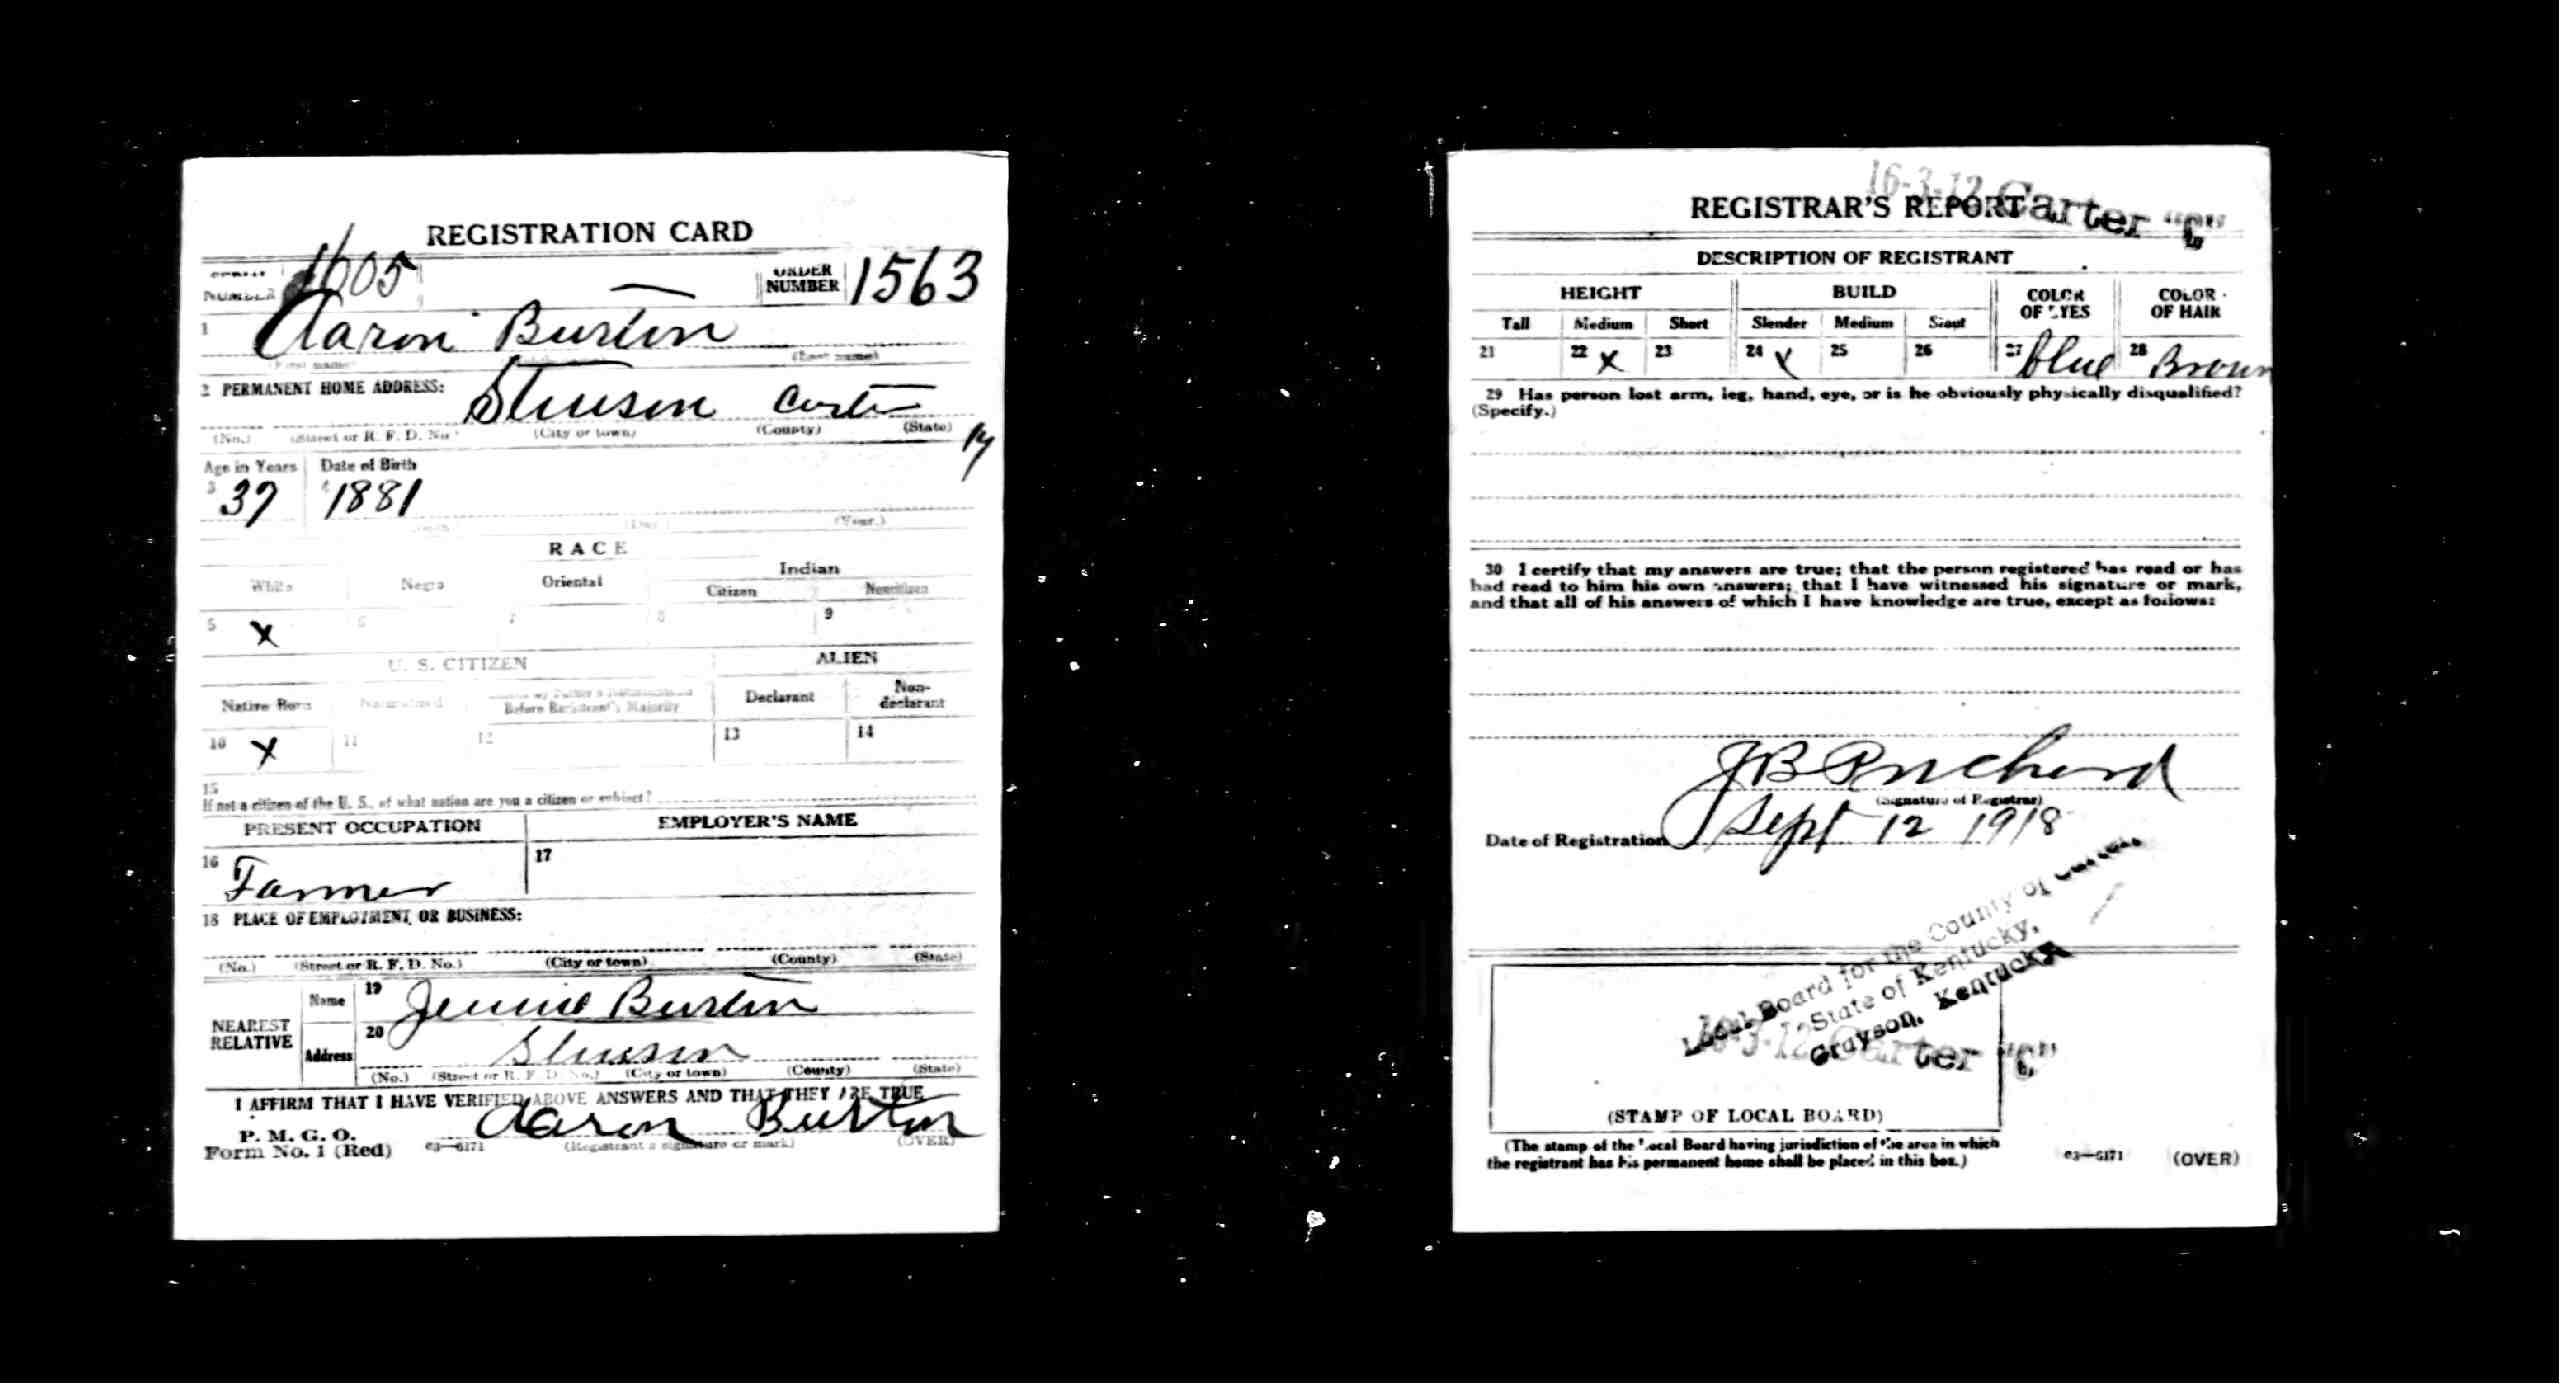 REGISTRATION CARD
SERIAL NUMBER 1605
ORDER NUMBER 1563
1 Aaron Burton
(First name) (Last name)
2 PERMANENT HOME ADDRESS: Stinson Carter Ky
(No.) (Street or R. F. D. No.) (City or town) (County) (State)
Age in Years Date of Birth
3 37 4 1881
(Month) (Day) (Year.)
RACE
White Negro Oriental Indian
Citizen Noncitizen
5 X 6 7 8 9
U. S. CITIZEN ALIEN
Native Born Naturalized Citizen by Father's Naturalization Before Registrant's Majority Declarant Non-declarant
10 X 11 12 13 14
15
If not a citizen of the U. S., of what nation are you a citizen or subject?
PRESENT OCCUPATION EMPLOYER'S NAME
16 Farmer 17
18 PLACE OF EMPLOYMENT OR BUSINESS:
(No.) (Street or R. F. D. No.) (City or town) (County) (State)
NEAREST RELATIVE
Name 19 Jennie Burton
Address 20 Stinson
(No.) (Street or R. F. D. No.) (City or town) (County) (State)
I AFFIRM THAT I HAVE VERIFIED ABOVE ANSWERS AND THAT THEY ARE TRUE
Aaron Burton
P. M. G. O.
Form No. 1 (Red) 03—6171 (Registrant's signature or mark) (OVER)
16-3-12 Carter "C"
REGISTRAR'S REPORT
DESCRIPTION OF REGISTRANT
HEIGHT BUILD COLOR OF EYES COLOR OF HAIR
Tall Medium Short Slender Medium Stout
21 22 X 23 24 X 25 26 27 Blue 28 Brown
29 Has person lost arm, leg, hand, eye, or is he obviously physically disqualified?
(Specify.)
30 I certify that my answers are true; that the person registered has read or has
had read to him his own answers; that I have witnessed his signature or mark,
and that all of his answers of which I have knowledge are true, except as follows:
J B Prichard
(Signature of Registrar)
Date of Registration Sept 12 1918
Local Board for the County of Carter
State of Kentucky,
Grayson, Kentucky
16-3-12 Carter "C"
(STAMP OF LOCAL BOARD)
(The stamp of the Local Board having jurisdiction of the area in which
the registrant has his permanent home shall be placed in this box.)
03—6171 (OVER)